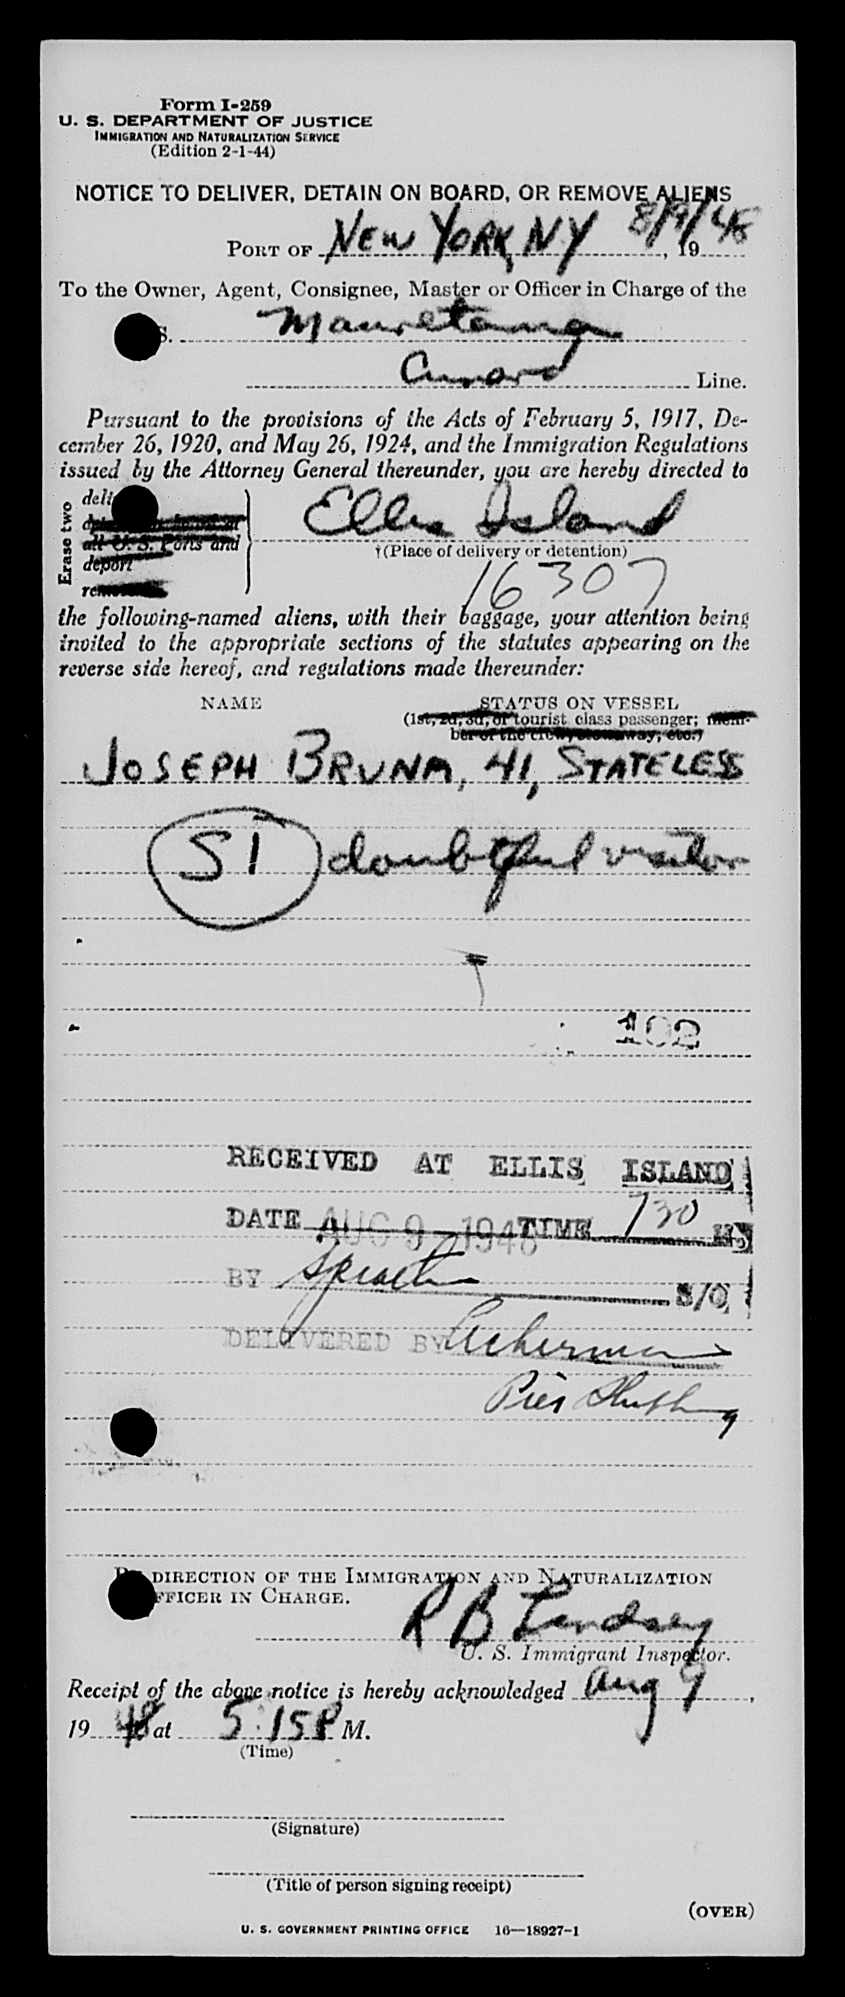 Form I-259
U. S. DEPARTMENT OF JUSTICE
IMMIGRATION AND NATURALIZATION SERVICE
(Edition 2-1-44)
NOTICE TO DELIVER, DETAIN ON BOARD, OR REMOVE ALIENS
PORT OF New York, NY 8/9/48, 19
To the Owner, Agent, Consignee, Master or Officer in Charge of the
S. Mauretania
Cunard Line.
Pursuant to the provisions of the Acts of February 5, 1917, De-
cember 26, 1920, and May 26, 1924, and the Immigration Regulations
issued by the Attorney General thereunder, you are hereby directed to
Erase two
Ellis Island
all U. S. Ports and
†(Place of delivery or detention)
deport
16307
the following-named aliens, with their baggage, your attention being
invited to the appropriate sections of the statutes appearing on the
reverse side hereof, and regulations made thereunder:
NAME STATUS ON VESSEL
(1st, 2d, 3d, or tourist class passenger; mem-
ber of the crew, stowaway, etc.)
JOSEPH BRUNA, 41, STATELESS
SI doubtful visitor
102
RECEIVED AT ELLIS ISLAND
DATE AUG 9 - 1948 TIME 730
BY S/O
DELIVERED BY
Pier
BY DIRECTION OF THE IMMIGRATION AND NATURALIZATION
OFFICER IN CHARGE.
R B Lindsey
U. S. Immigrant Inspector.
Receipt of the above notice is hereby acknowledged Aug 9,
19 48 at 5:15 P M.
(Time)
(Signature)
(Title of person signing receipt)
(OVER)
U. S. GOVERNMENT PRINTING OFFICE 16—18927-1